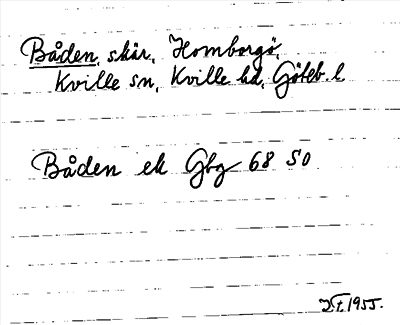 Båden, skär, Homborgö,
Kville sn, Kville hd, Göteb. l
Båden ek Gbg 68 SO
1955.